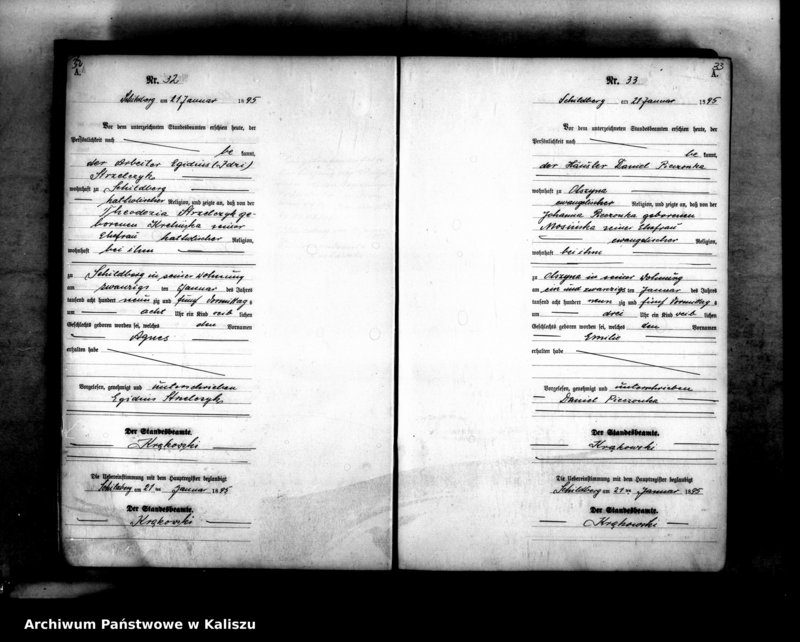 32
A.
Nr. 32
Schildberg am 21 Januar 1895
Vor dem unterzeichneten Standesbeamten erschien heute, der
Persönlichkeit nach
be kannt,
der Arbeiter Egidius (Idzi)
Strzelczyk
wohnhaft zu Schildberg
katholischer Religion, und zeigte an, daß von der
Theodozia Strzelczyk ge-
borenen Kselinska seiner
Ehefrau katholischer Religion,
wohnhaft bei ihm
zu Schildberg in seiner Wohnung
am zwanzigs ten Januar des Jahres
tausend acht hundert neun zig und fünf Vormittags
um acht Uhr ein Kind weib lichen
Geschlechts geboren worden sei, welches den Vornamen
Agnes
erhalten habe
Vorgelesen, genehmigt und unterschrieben
Egidius Strzelczyk
Der Standesbeamte.
Krąkowski
Die Uebereinstimmung mit dem Hauptregister beglaubigt
Schildberg am 21 ten Januar 1895
Der Standesbeamte.
Krąkowski
33
A.
Nr. 33
Schildberg am 21 Januar 1895
Vor dem unterzeichneten Standesbeamten erschien heute, der
Persönlichkeit nach
be kannt,
der Häusler Daniel Pieczonka
wohnhaft zu Olszyna
evangelischer Religion, und zeigte an, daß von der
Johanna Pieczonka geborenen
Mosinska seiner Ehefrau
evangelischer Religion,
wohnhaft bei ihm
zu Olszyna in seiner Wohnung
am ein und zwanzigs ten Januar des Jahres
tausend acht hundert neun zig und fünf Vormittags
um drei Uhr ein Kind weib lichen
Geschlechts geboren worden sei, welches den Vornamen
Emilie
erhalten habe
Vorgelesen, genehmigt und unterschrieben
Daniel Pieczonka
Der Standesbeamte.
Krąkowski
Die Uebereinstimmung mit dem Hauptregister beglaubigt
Schildberg am 21 ten Januar 1895
Der Standesbeamte.
Krąkowski
Archiwum Państwowe w Kaliszu